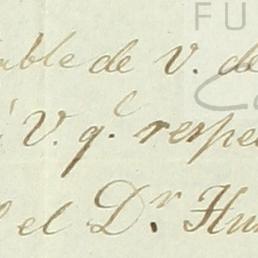 FU
able de V. de
á V. q.e respe
l el D.r Hum